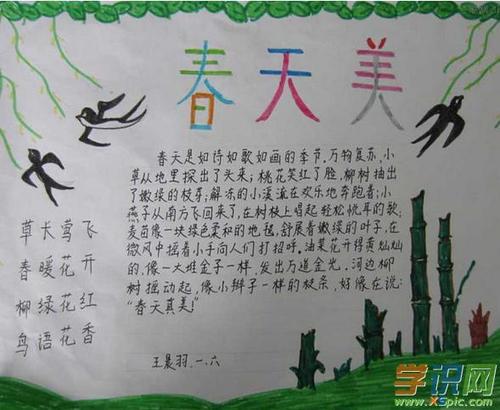 春天美
春天是如诗如歌如画的季节,万物复苏,小
草从地里探出了头来;桃花笑红了脸,柳树抽出
了嫩绿的枝芽;解冻的小溪流在欢乐地奔跑着;小
燕子从南方飞回来了,在树枝上唱起轻松悦耳的歌;
麦苗像一块绿色柔和的地毯,舒展着嫩绿的叶子,在
微风中摇着小手向人们打招呼,油菜花开得黄灿灿
的,像一大堆金子一样,发出万道金光。河边柳
树摇动起,像小辫子一样的枝条,好像在说:
“春天真美!”
草长莺飞
春暖花开
柳绿花红
鸟语花香
王晨羽.一.六
学识网
www.XSpic.com